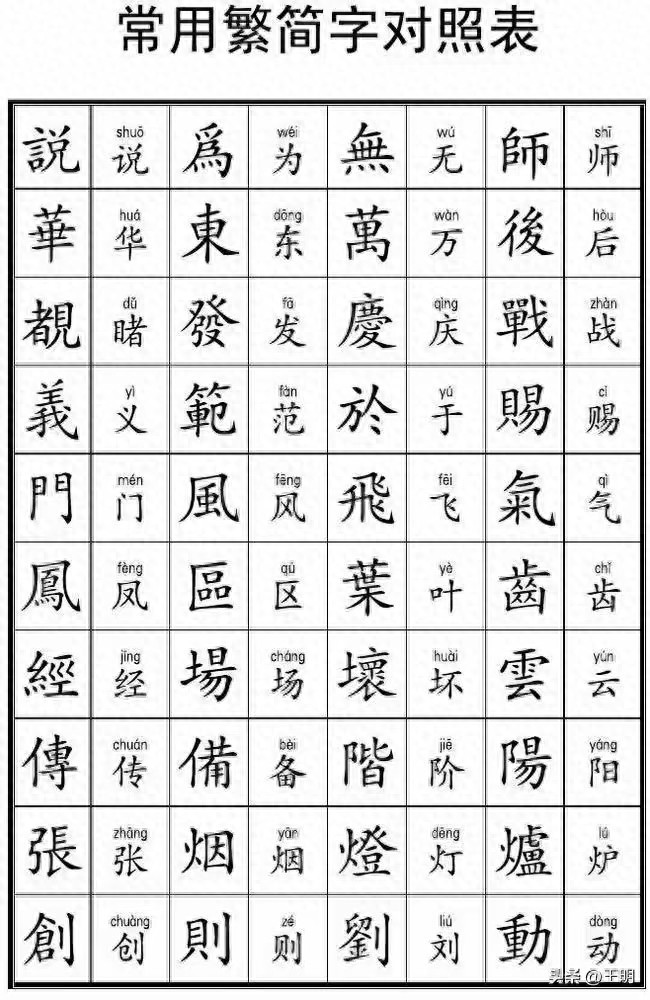 常用繁简字对照表
shuō wéi wú shī
説 说 爲 为 無 无 師 师
huá dōng wàn hòu
華 华 東 东 萬 万 後 后
dǔ fā qìng zhàn
覩 睹 發 发 慶 庆 戰 战
yì fàn yú cì
義 义 範 范 於 于 賜 赐
mén fēng fēi qì
門 门 風 风 飛 飞 氣 气
fèng qū yè chǐ
鳳 凤 區 区 葉 叶 齒 齿
jīng cháng huài yún
經 经 場 场 壞 坏 雲 云
chuán bèi jiē yáng
傳 传 備 备 階 阶 陽 阳
zhāng yān dēng lú
張 张 烟 烟 燈 灯 爐 炉
chuàng zé liú dòng
創 创 則 则 劉 刘 動 动
头条 @王明